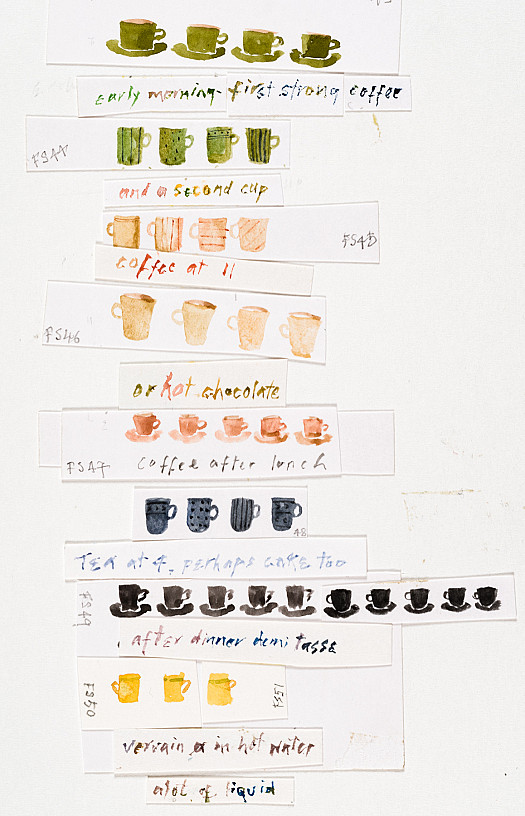 early morning - first strong coffee
FS44
and a second cup
FS45
coffee at 11
FS46
or hot chocolate
FS47
coffee after lunch
48
TEA at 4, perhaps cake too
FS49
after dinner demi tasse
FS50
FS51
in hot water
alot of liquid